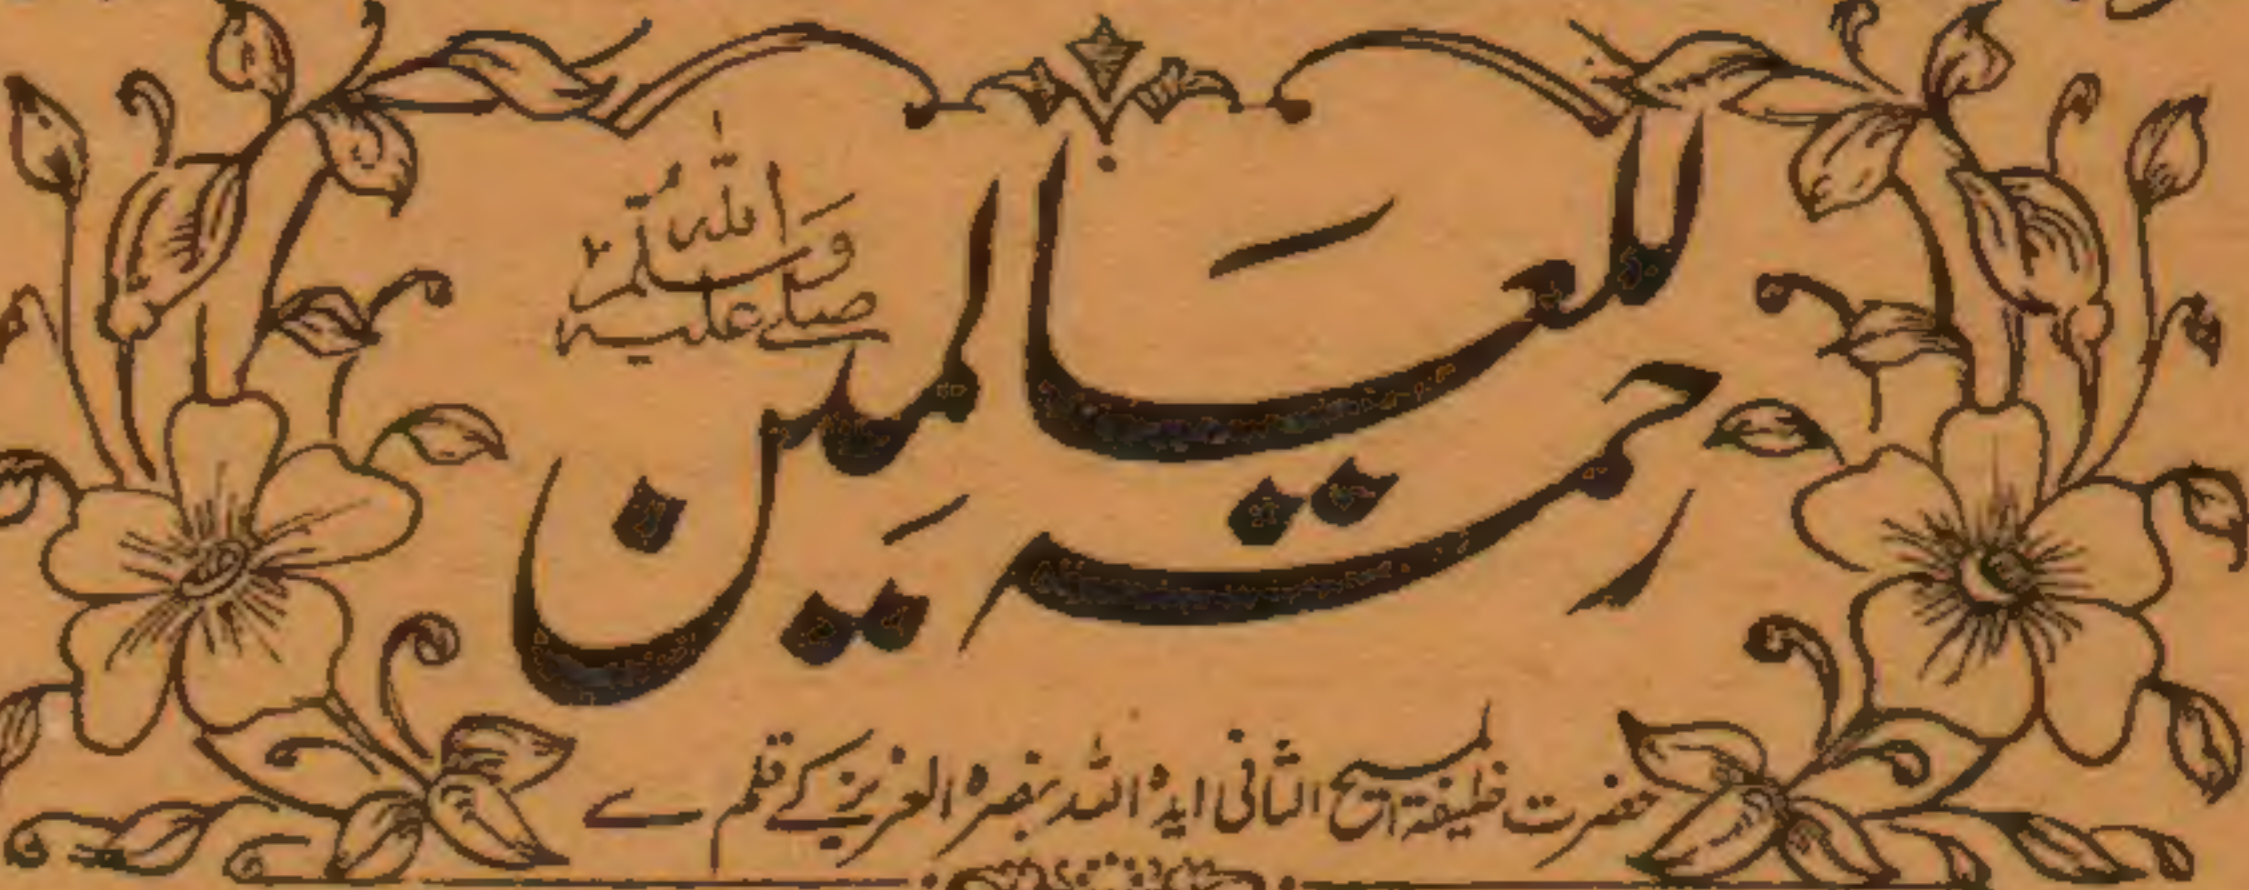 رحمۃ للعالمین
صلے اللہ علیہ وسلم
حضرت خلیفۃ المسیح الثانی ایدہ اللہ بنصرہ العزیز کے قلم سے